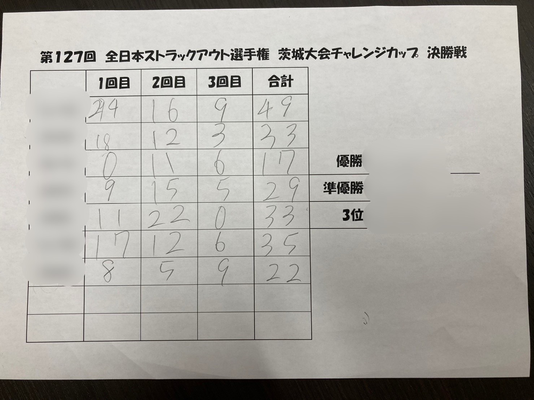 第127回 全日本ストラックアウト選手権 茨城大会チャレンジカップ 決勝戦
1回目 2回目 3回目 合計
24 16 9 49
18 12 3 33
0 11 6 17 優勝
9 15 5 29 準優勝
11 22 0 33 3位
17 12 6 35
8 5 9 22